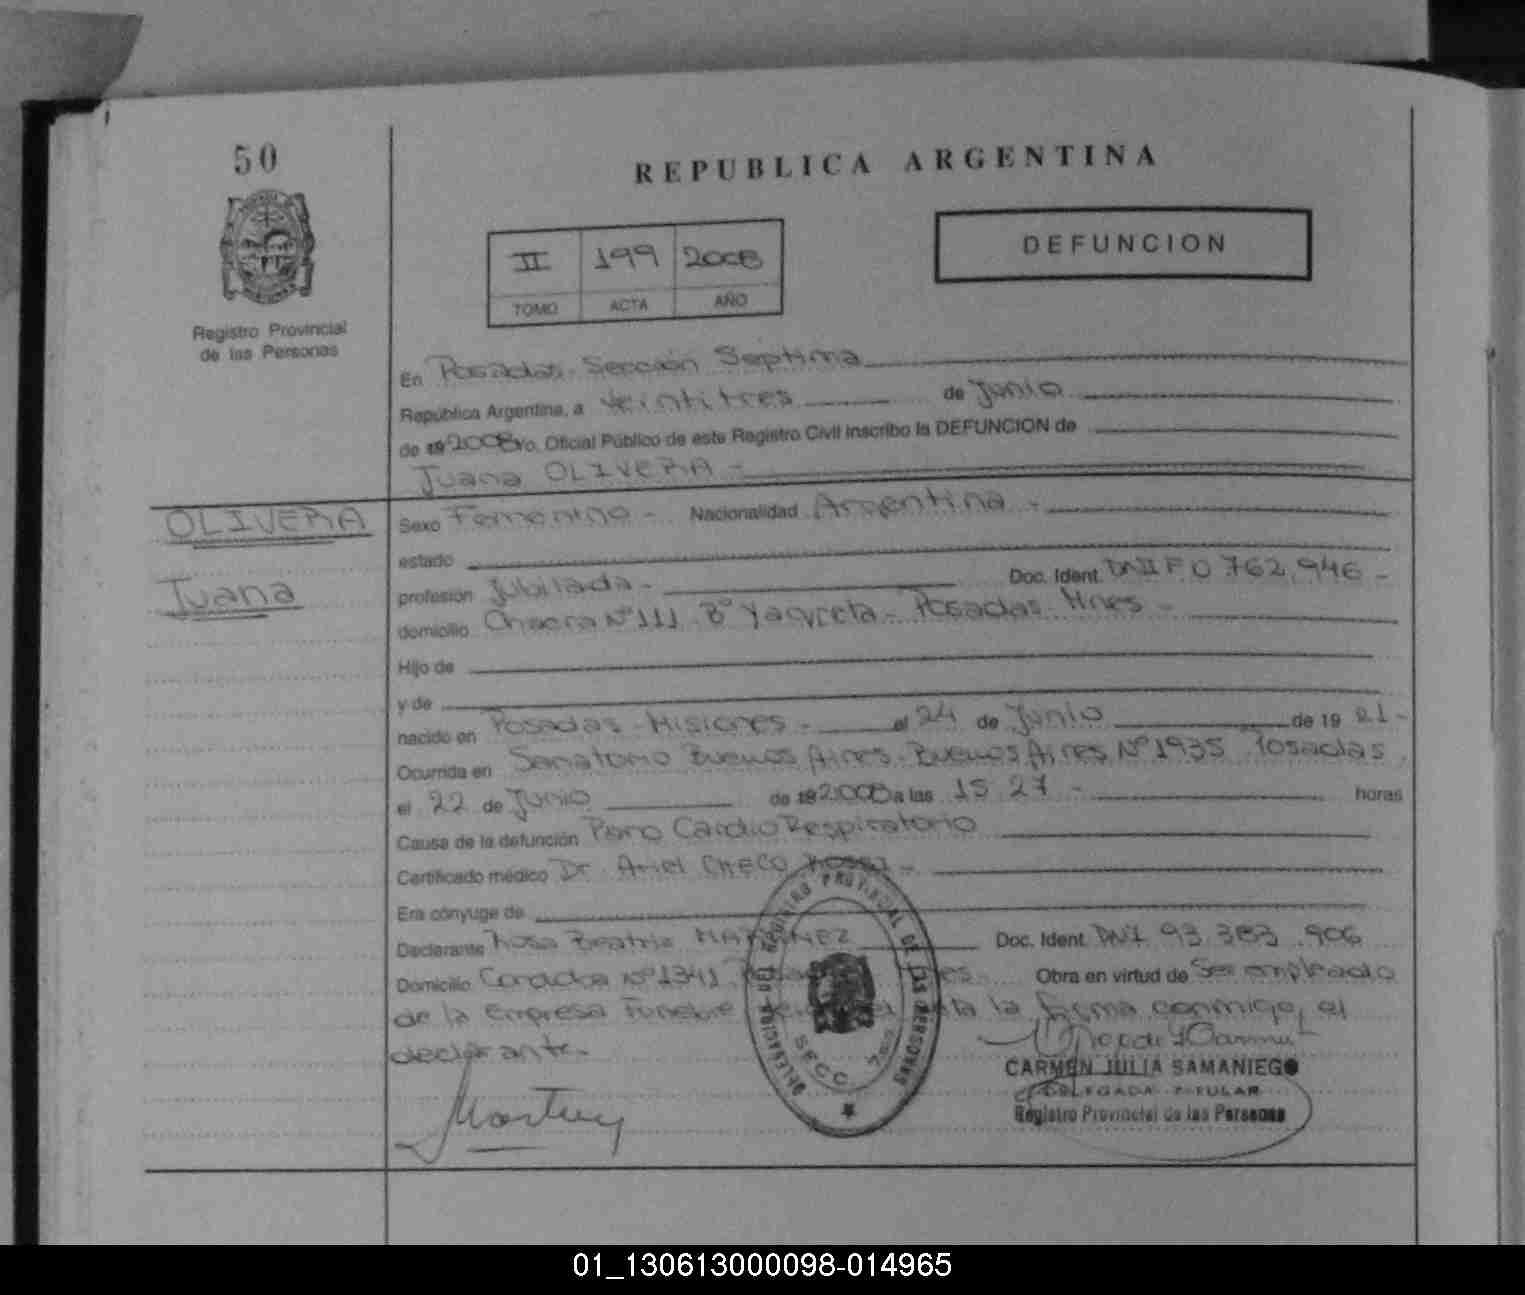 50
REPUBLICA ARGENTINA
II 199 2008
TOMO ACTA AÑO
DEFUNCION
Registro Provincial
de las Personas
En Posadas - Sección Septima
República Argentina, a veintitres de Junio
de 19 2008 Yo, Oficial Público de este Registro Civil inscribo la DEFUNCION de
Juana OLIVERA -
OLIVERA
Juana
Sexo Femenino - Nacionalidad Argentina -
estado
profesión Jubilada - Doc. Ident. DNI F 0.762.946 -
domicilio Chacra Nº 111 - Bº Yacyreta - Posadas - Mnes -
Hijo de
y de
nacido en Posadas - Misiones - el 24 de Junio de 19 21 -
Ocurrida en Sanatorio Buenos Aires - Buenos Aires Nº 1935 Posadas
el 22 de Junio de 19 2008 a las 15:27 - horas
Causa de la defunción Paro Cardio Respiratorio
Certificado médico Dr. Ariel CHECO
Era cónyuge de
Declarante Rosa Beatriz MARTINEZ Doc. Ident. DNI. 93.383.906
Domicilio Cordoba Nº 1341 Obra en virtud de Ser empleado
de la empresa Funebre la firma conmigo, el
declarante.
DELEGACION DEL REGISTRO PROVINCIAL DE LAS PERSONAS
SECC. 7ma
CARMEN JULIA SAMANIEGO
DELEGADA TITULAR
Registro Provincial de las Personas
01_130613000098-014965